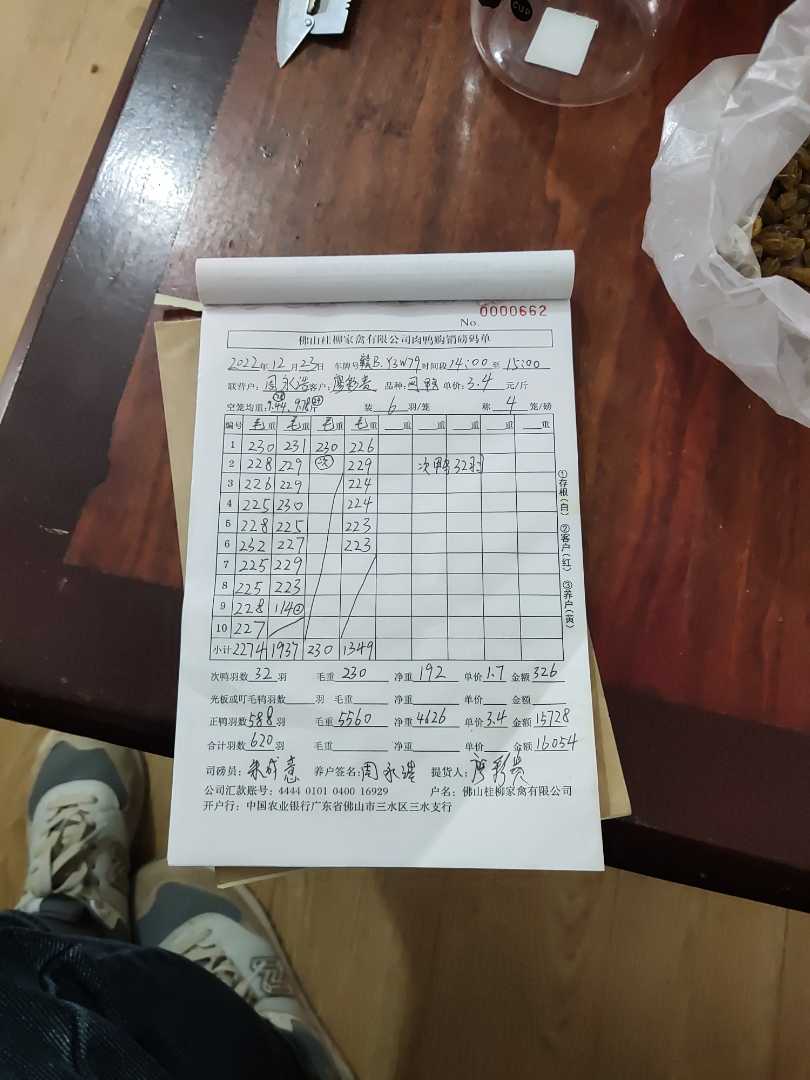 CUP
No. 0000662
佛山桂柳家禽有限公司肉鸭购销磅码单
2022年12月23日 车牌号赣B.Y3W79时间段14:00至15:00
联营户:周永浩 客户:廖彩贵 品种: 单价:3.4元/斤
空笼均重:9.44、9.78斤 装6羽/笼 称4笼/磅
编号 毛重 毛重 毛重 毛重 重 重 重 重 重
1 230 231 230 226
2 228 229 次 229 次鸭32羽
3 226 229 224
4 225 230 224
5 228 225 223
6 232 227 223
7 225 229
8 225 223
9 228 114②
10 227
小计 2274 1937 230 1349
次鸭羽数32羽 毛重230 净重192 单价1.7 金额326
光板或叮毛鸭羽数 羽 毛重 净重 单价 金额
正鸭羽数588羽 毛重5560 净重4626 单价3.4 金额15728
合计羽数620羽 毛重 净重 单价 金额16054
司磅员:朱成意 养户签名:周永浩 提货人:廖彩贵
公司汇款账号:4444 0101 0400 16929 户名:佛山桂柳家禽有限公司
开户行:中国农业银行广东省佛山市三水区三水支行
①存根(白) ②客户(红) ③养户(黄)